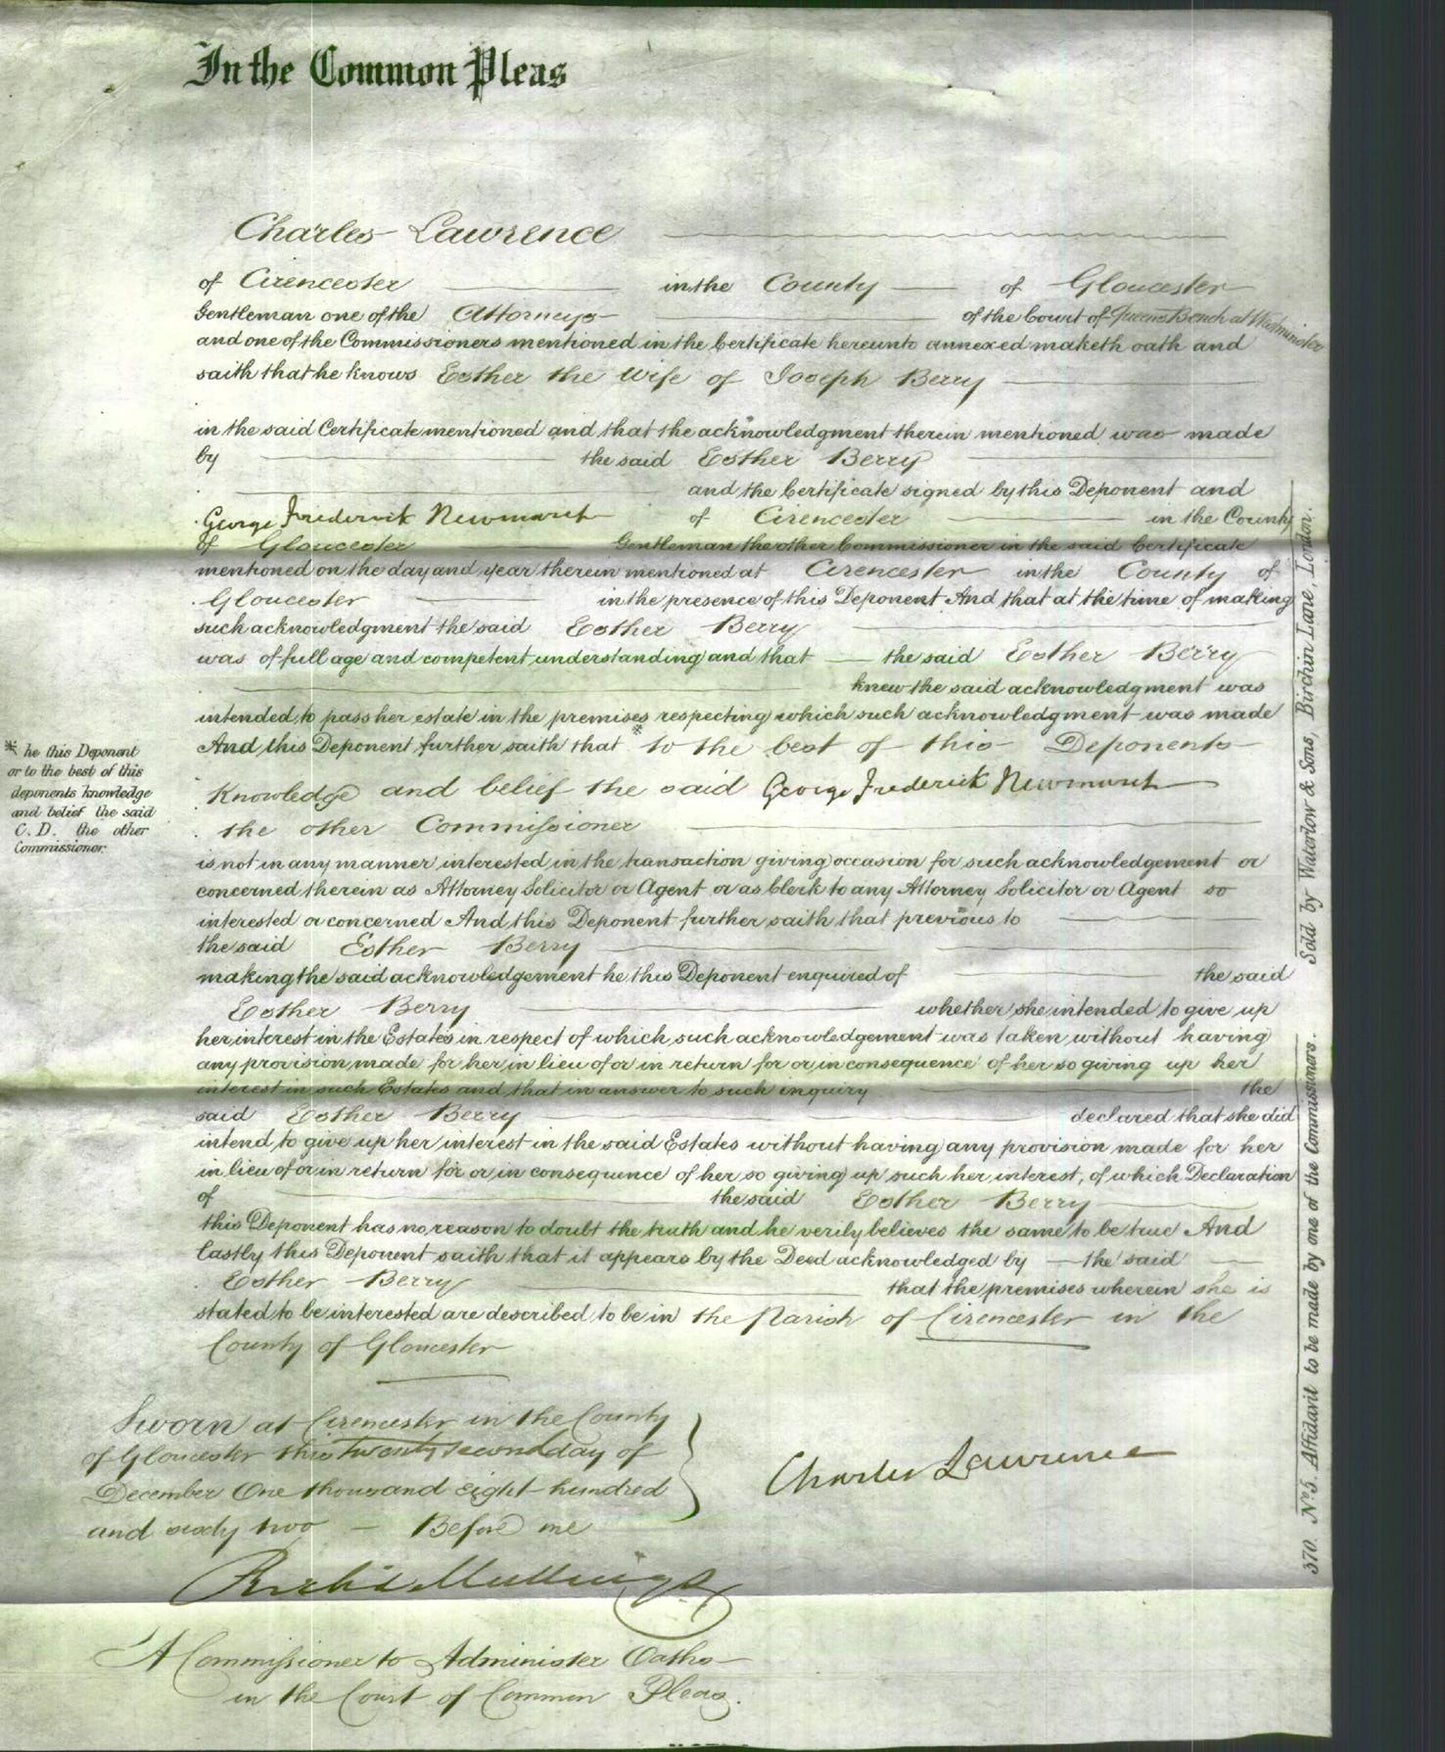 In the Common Pleas
Charles Lawrence
of Cirencester in the County of Gloucester
Gentleman one of the Attorneys of the Court of Queens Bench at Westminster
and one of the Commissioners mentioned in the Certificate hereunto annexed maketh oath and
saith that he knows Esther the Wife of Joseph Berry
in the said Certificate mentioned and that the acknowledgment therein mentioned was made
by the said Esther Berry
and the Certificate signed by this Deponent and
George Frederick Newmarch of Cirencester in the County
of Gloucester Gentleman the other Commissioner in the said Certificate
mentioned on the day and year therein mentioned at Cirencester in the County of
Gloucester in the presence of this Deponent And that at the time of making
such acknowledgment the said Esther Berry
was of full age and competent understanding and that the said Esther Berry
knew the said acknowledgment was
intended to pass her estate in the premises respecting which such acknowledgment was made
And this Deponent further saith that * to the best of this Deponents
Knowledge and belief the said George Frederick Newmarch
the other Commissioner
* he this Deponent
or to the best of this
deponents knowledge
and belief the said
C. D. the other
Commissioner.
is not in any manner interested in the transaction giving occasion for such acknowledgement or
concerned therein as Attorney Solicitor or Agent or as Clerk to any Attorney Solicitor or Agent so
interested or concerned And this Deponent further saith that previous to
the said Esther Berry
making the said acknowledgement he this Deponent enquired of the said
Esther Berry whether she intended to give up
her interest in the Estates in respect of which such acknowledgement was taken without having
any provision made for her in lieu of or in return for or in consequence of her so giving up her
interest in such Estates and that in answer to such inquiry the
said Esther Berry declared that she did
intend to give up her interest in the said Estates without having any provision made for her
in lieu of or in return for or in consequence of her so giving up such her interest, of which Declaration
of the said Esther Berry
this Deponent has no reason to doubt the truth and he verily believes the same to be true And
lastly this Deponent saith that it appears by the Deed acknowledged by the said
Esther Berry that the premises wherein she is
stated to be interested are described to be in the Parish of Cirencester in the
County of Gloucester
Sworn at Cirencester in the County
of Gloucester this twenty second day of
December One thousand eight hundred
and sixty two Before me
Charles Lawrence
Richd Mullings
A Commissioner to Administer Oaths
in the Court of Common Pleas.
370. No 5. Affidavit to be made by one of the Commissioners. Sold by Waterlow & Sons, Birchin Lane, London.